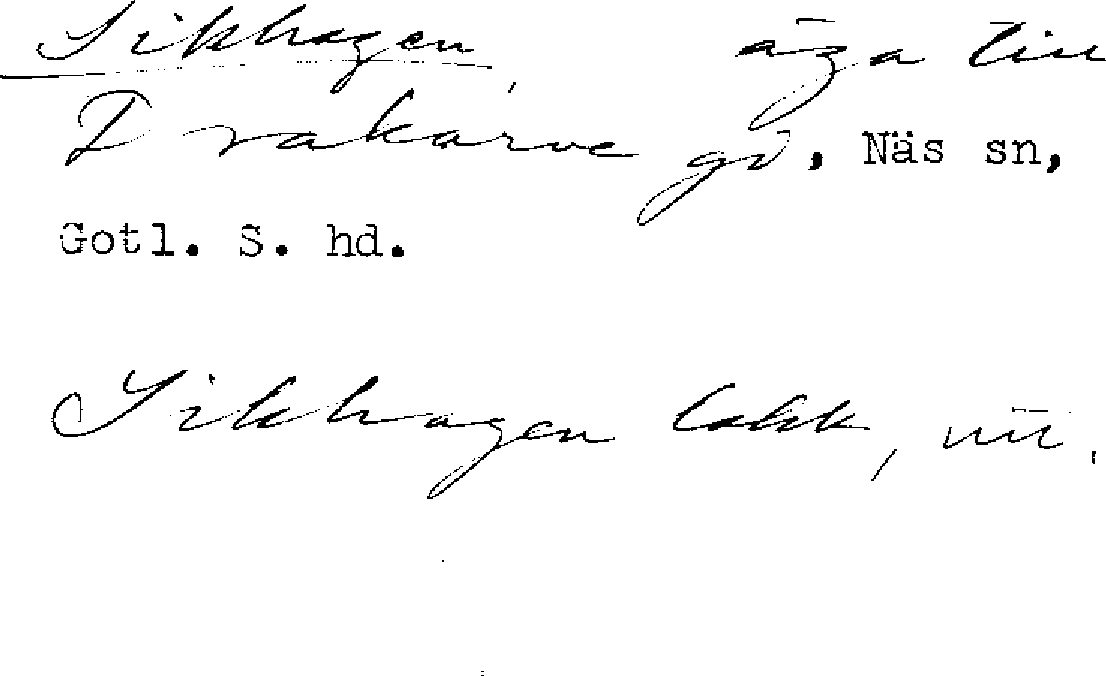 Sikhagen, äga till
Drakarve gd, Näs sn,
Gotl. S. hd.
Sikhagen